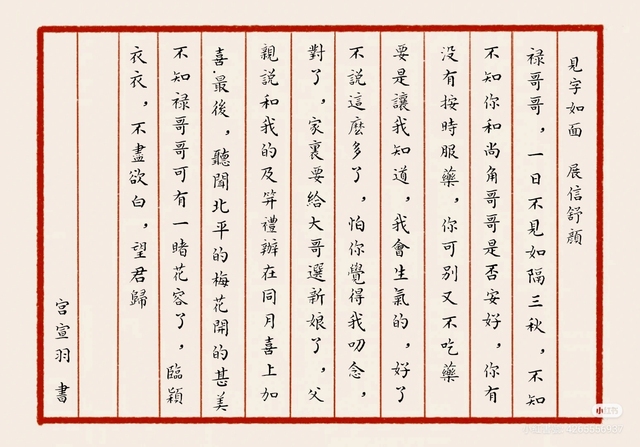 見字如面 展信舒顏
禄哥哥，一日不見如隔三秋，不知
不知你和尚角哥哥是否安好，你有
没有按時服藥，你可别又不吃藥
要是讓我知道，我會生氣的，好了
不說這麽多了，怕你覺得我叨念，
對了，家裏要給大哥選新娘了，父
親說和我的及笄禮辦在同月喜上加
喜.最後，聽聞北平的梅花開的甚美
不知禄哥哥可有一睹花容了，臨穎
衣衣，不盡欲白，望君歸
宫宣羽 書
小红书